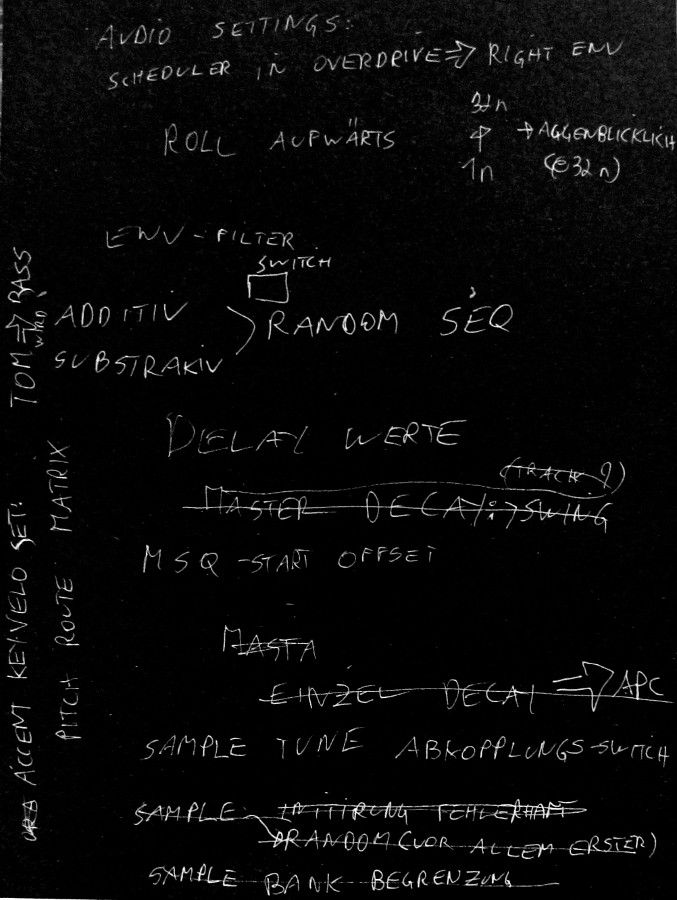 AUDIO SETTINGS:
SCHEDULER IN OVERDRIVE ⇒ RIGHT ENV
32n
ROLL AUFWÄRTS ↑ → AGGENBLICKLICH
1n (32n)
ENV-FILTER
SWITCH
ADDITIV
RANDOM SEQ
SUBSTRAKIV
DELAY WERTE
(TRACK?)
MASTER DECAY:→SWING
MSQ-START OFFSET
MASTA
EINZEL DECAY ⇒ APC
SAMPLE TUNE ABKOPPLUNGS-SWITCH
SAMPLE INITIRUNG FEHLERHAFT
RANDOM (VOR ALLEM ERSTER)
SAMPLE BANK BEGRENZUNG
ACCENT KEY/VELO SET! TOM ⇒ BASS
PITCH ROUTE MATRIX